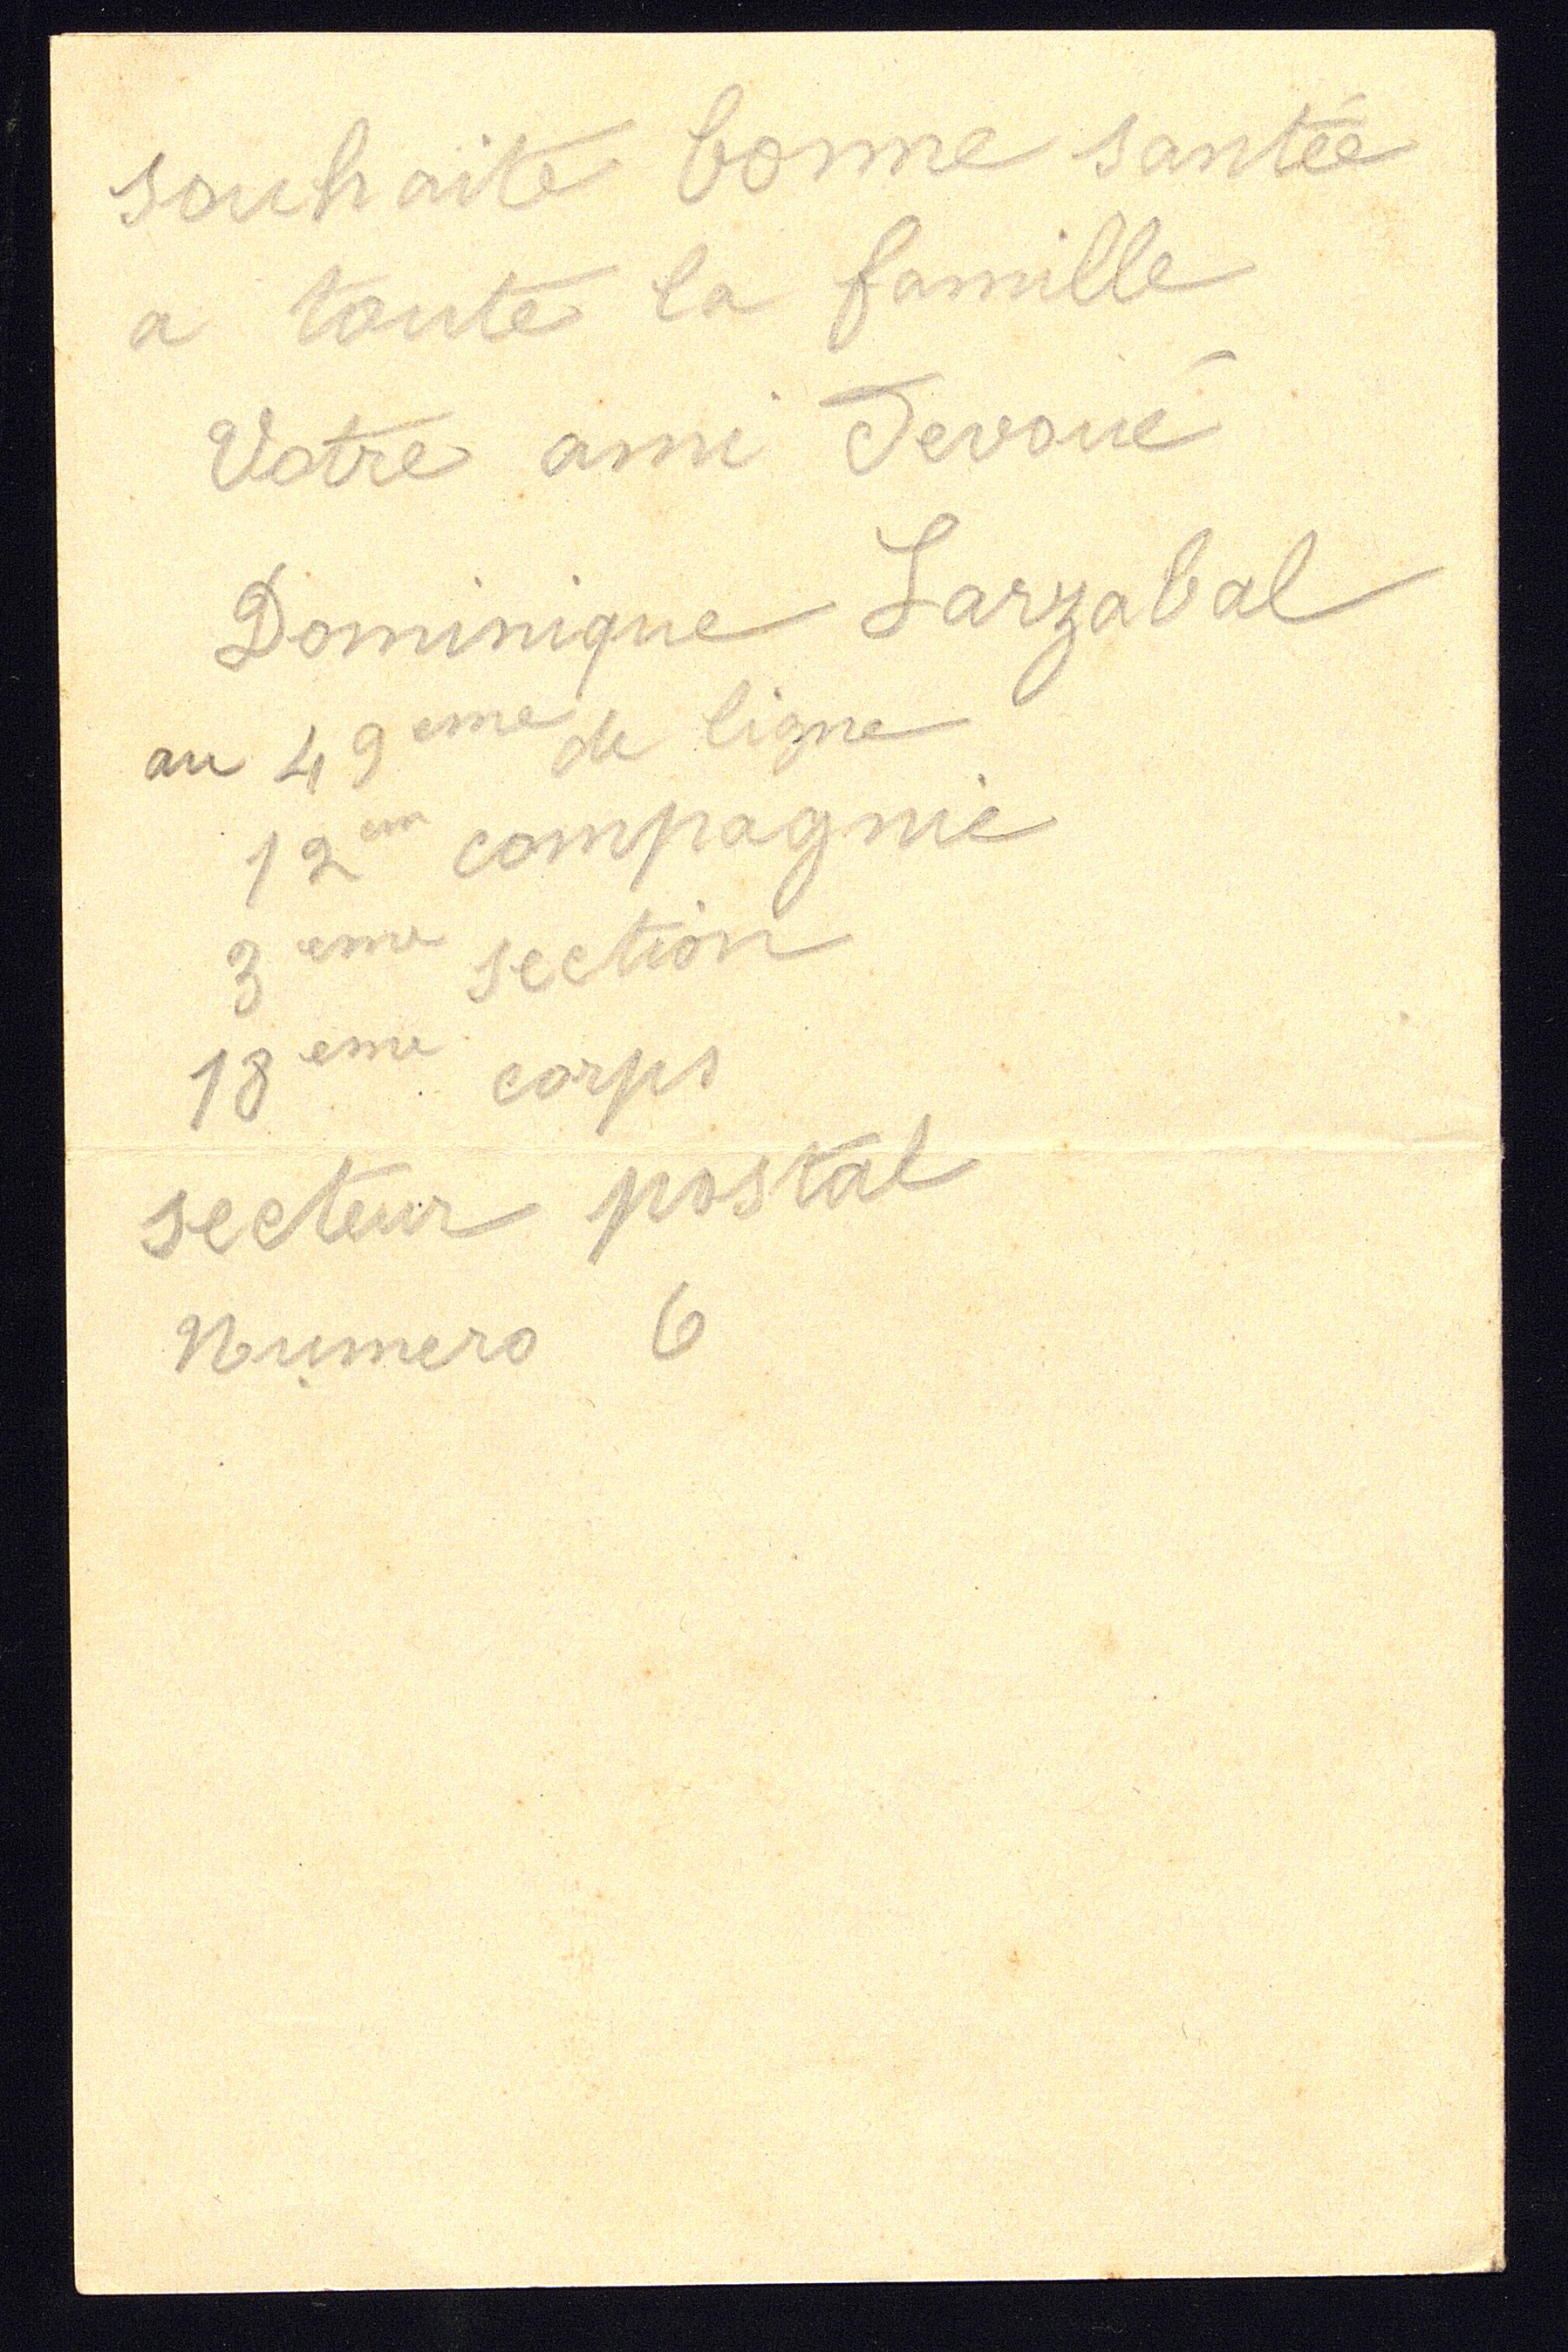 souhaite bonne santée
a toute la famille
Votre ami Devoué
Dominique Larzabal
au 49eme de ligne
12em compagnie
3eme section
18eme corps
secteur postal
Numero 6